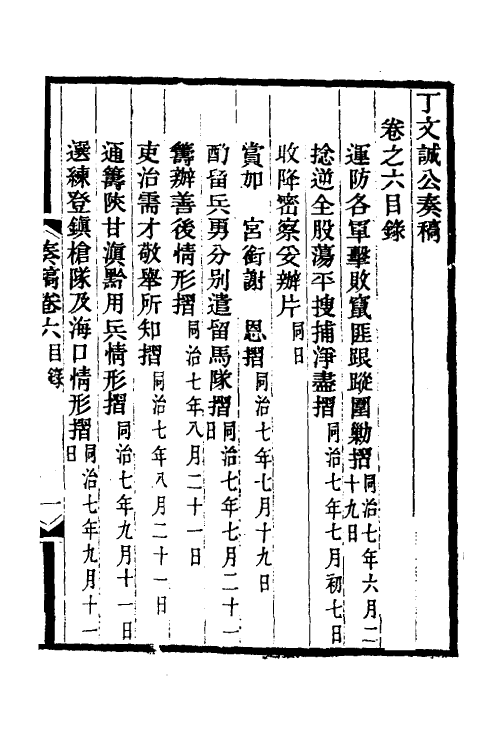 丁文誠公奏稿
卷之六目錄
運防各軍擊敗竄匪跟蹤圍勦摺同治七年六月二十九日
捻逆全股蕩平搜捕淨盡摺同治七年七月初七日
收降密察妥辦片同日
賞加 宮銜謝 恩摺同治七年七月十九日
酌留兵勇分別遣留馬隊摺同治七年七月二十一日
籌辦善後情形摺同治七年八月二十一日
吏治需才敬舉所知摺同治七年八月二十一日
通籌陝甘滇黔用兵情形摺同治七年九月十一日
選練登鎮槍隊及海口情形摺同治七年九月十一日
奏稿卷六目錄 一